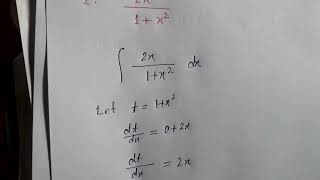 1. 2x / 1 + x²
∫ 2x / 1+x² dx
Let t = 1+x²
dt/dx = 0+2x
dt/dx = 2x